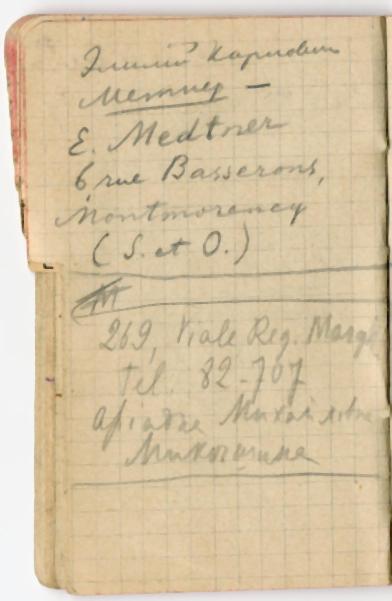 Эмилий Карлович
Метнер —
E. Medtner
6 rue Basserons,
Montmorency
(S. et O.)
269, Viale Reg. Margh
Tel. 82-707
Ариадна Михайловна